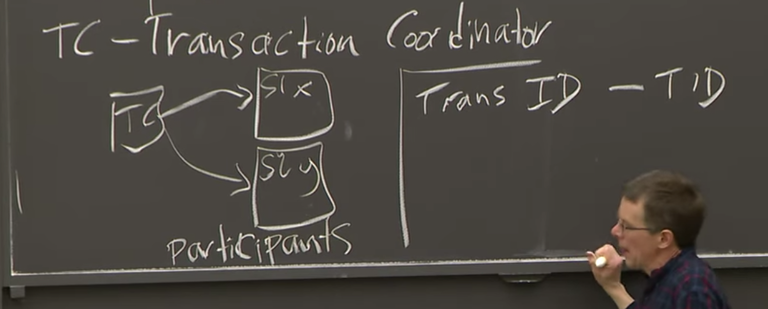 TC - Transaction Coordinator
TC
S1 x
S2 y
participants
Trans ID - TID